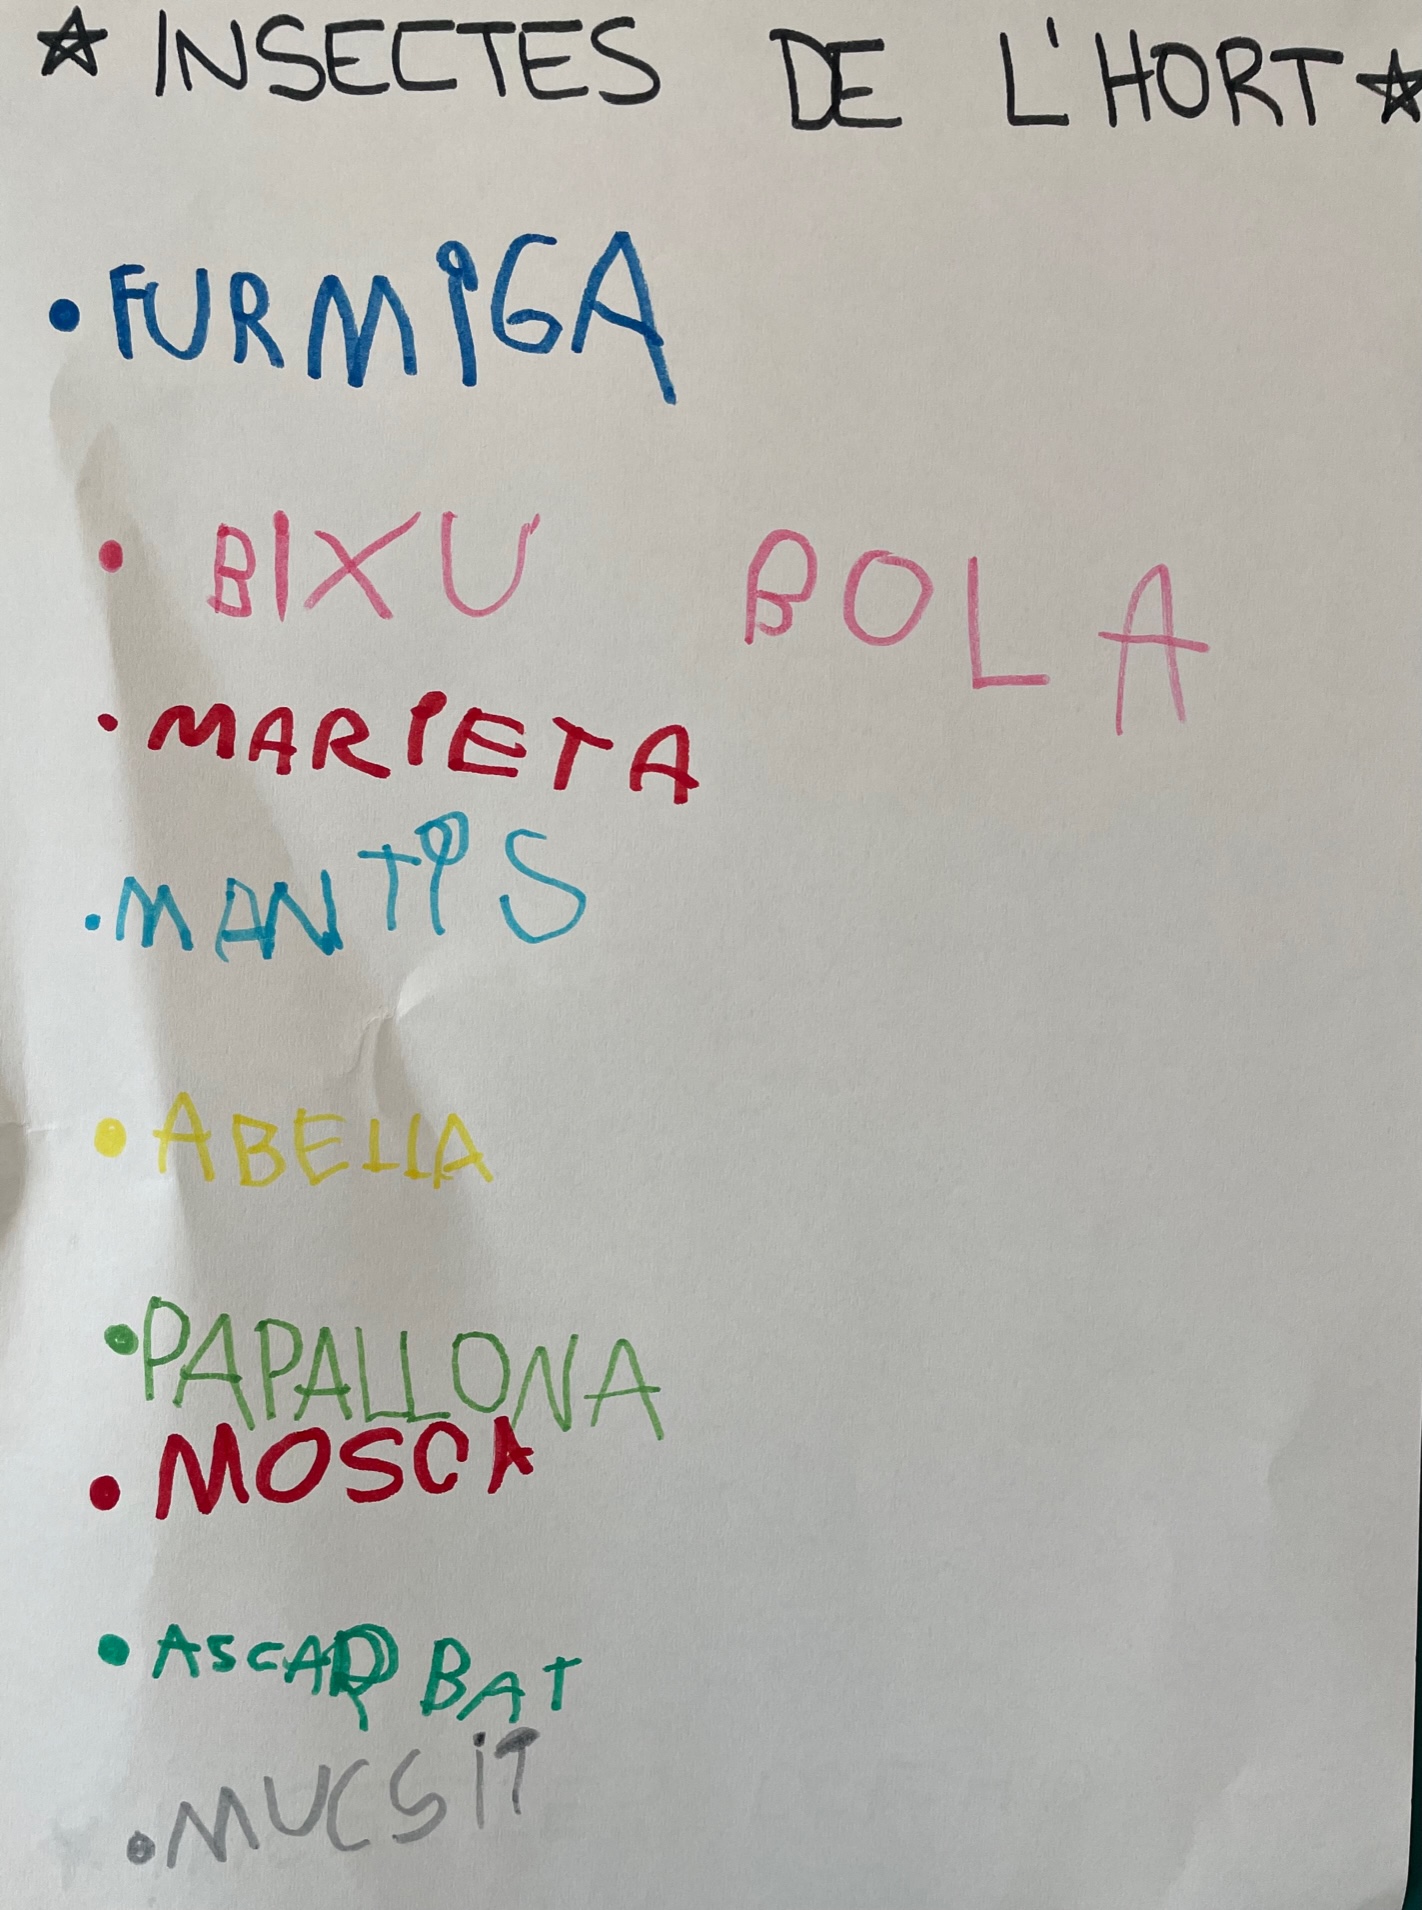 ☆ INSECTES DE L'HORT ☆
• FURMIGA
• BIXU BOLA
• MARIETA
• MANTIS
• ABELLA
• PAPALLONA
• MOSCA
• ASCARBAT
• MUCSIT